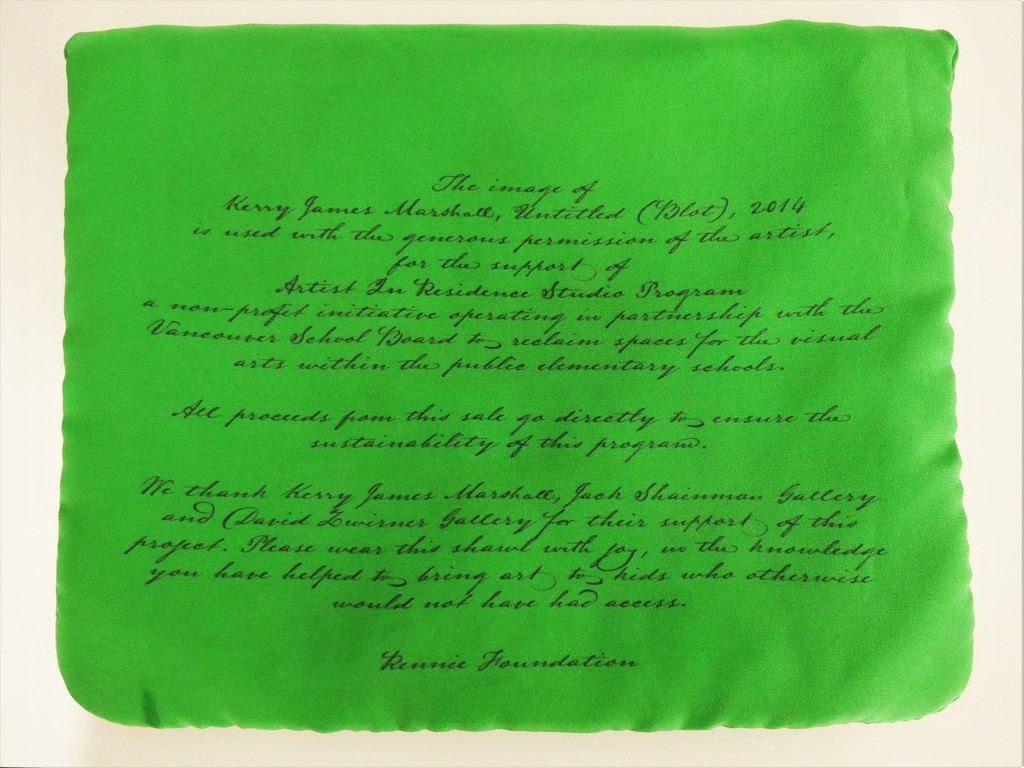 The image of
Kerry James Marshall, Untitled (Blot), 2014
is used with the generous permission of the artist,
for the support of
Artist In Residence Studio Program
a non-profit initiative operating in partnership with the
Vancouver School Board to reclaim spaces for the visual
arts within the public elementary schools.
All proceeds from this sale go directly to ensure the
sustainability of this program.
We thank Kerry James Marshall, Jack Shainman Gallery
and David Zwirner Gallery for their support of this
project. Please wear this shawl with joy, in the knowledge
you have helped to bring art to kids who otherwise
would not have had access.
Rennie Foundation